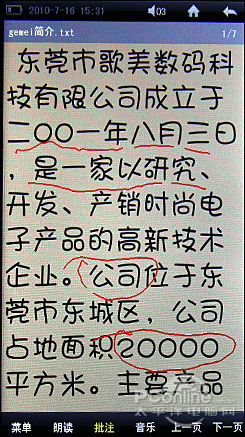 2010-7-16 15:31 03
gemei简介.txt 1/7
东莞市歌美数码科
技有限公司成立于
二OO一年八月三日
，是一家以研究、
开发、产销时尚电
子产品的高新技术
企业。公司位于东
莞市东城区，公司
占地面积20000
平方米。主要产品
PConline
太平洋电脑网
菜单 朗读 批注 音乐 上一页 下一页